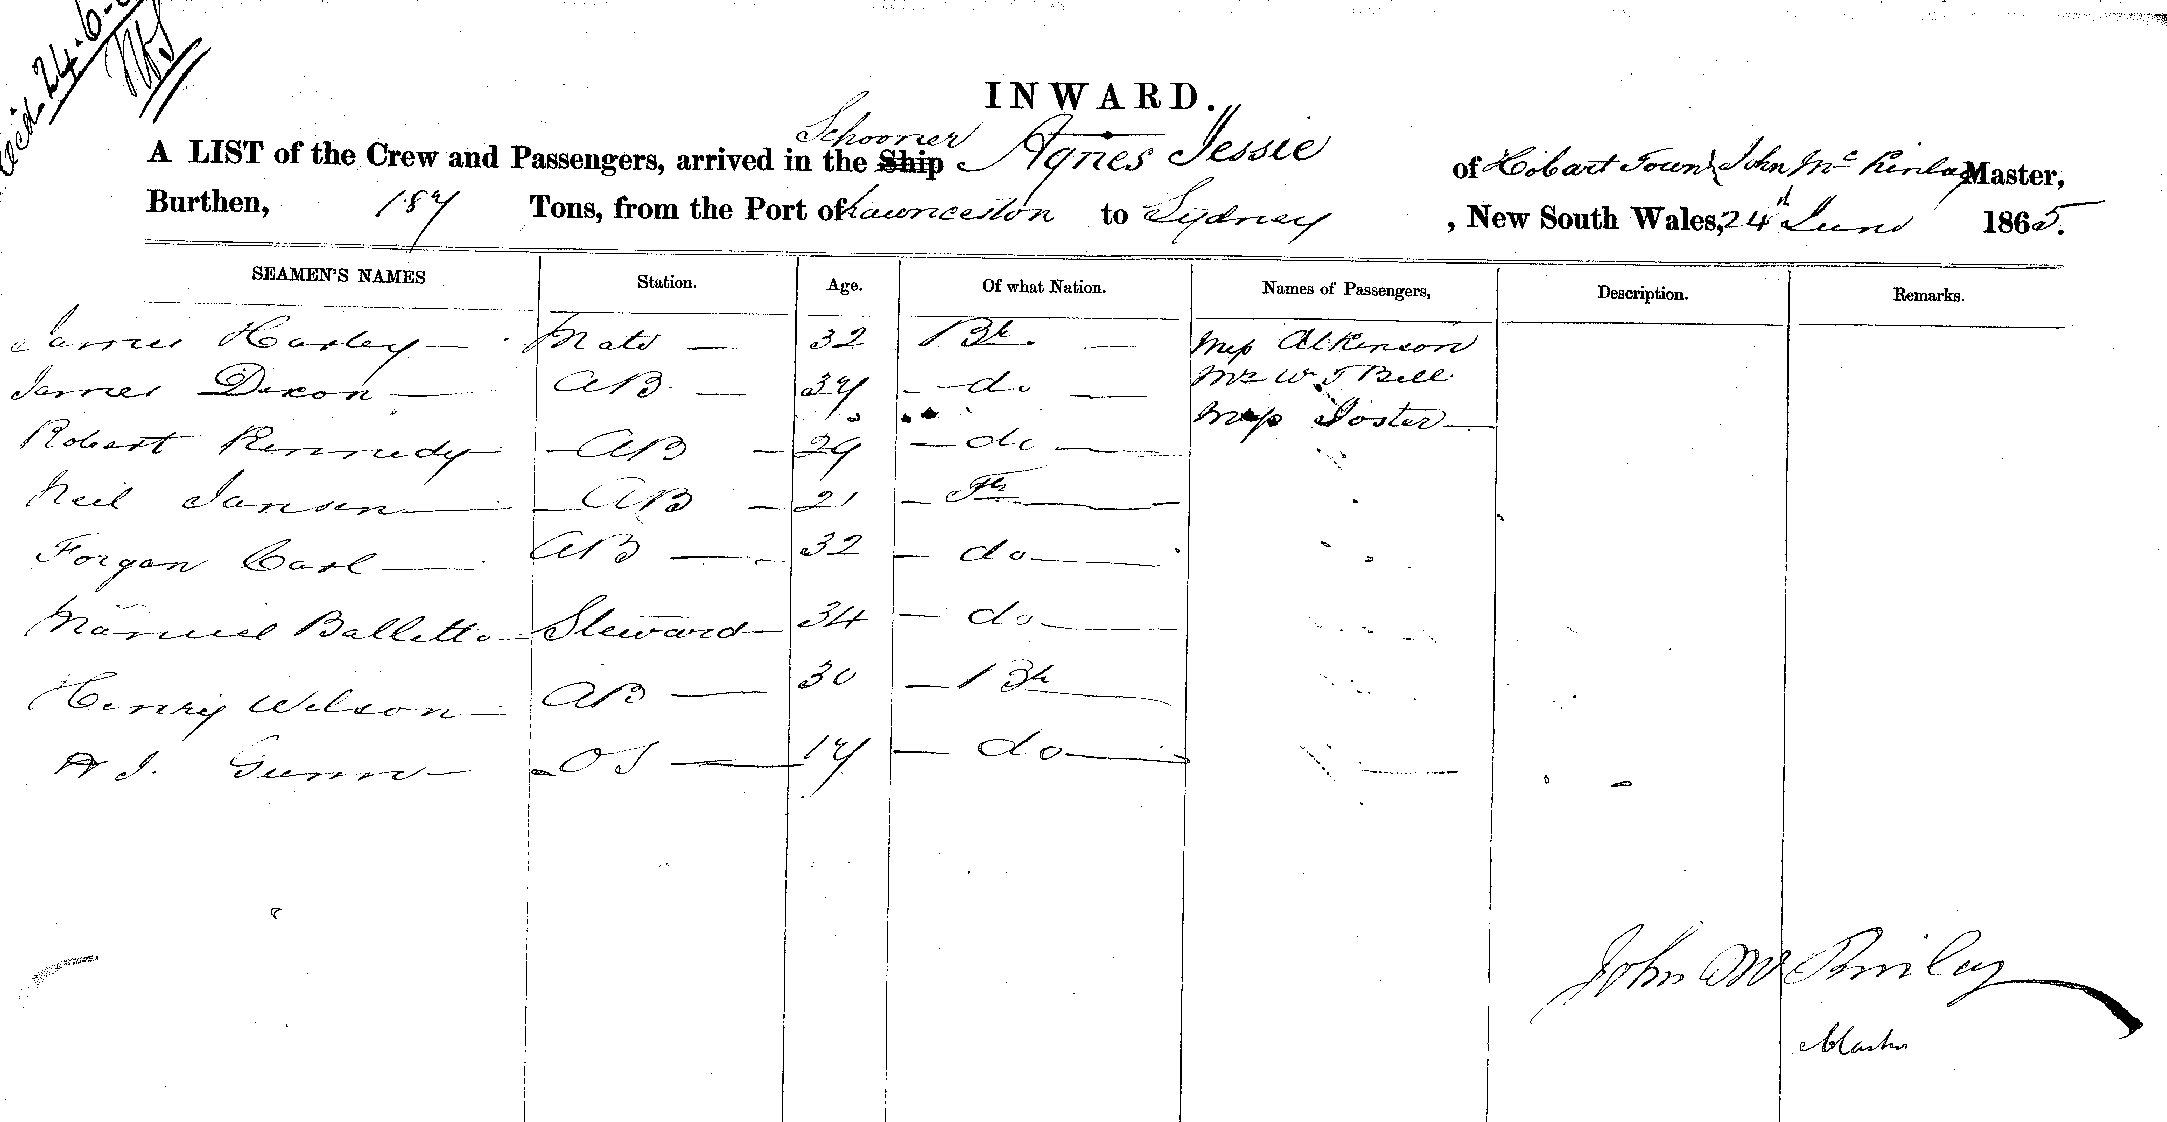 24.6.
INWARD.
A LIST of the Crew and Passengers, arrived in the Ship Schooner Agnes Jessie of Hobart Town, John Mc Kinlay Master,
Burthen, 187 Tons, from the Port of Launceston to Sydney, New South Wales, 24th June 1865.
SEAMEN'S NAMES Station. Age. Of what Nation. Names of Passengers, Description. Remarks.
James Harley — Mate — 32 Bh. — Miss Atkinson
James Dixon — AB — 37 — do — Mr W J Bell
Miss Foster —
Robert Kennedy — AB — 29 — do —
Neil Jansen — AB — 21 — Fr —
Forgan Carl — AB — 32 — do —
Manuel Balletto — Steward — 34 — do —
Henry Wilson — AB — 30 — Bh —
J. Gunn — OS — 17 — do —
John Mc Kinlay
Master